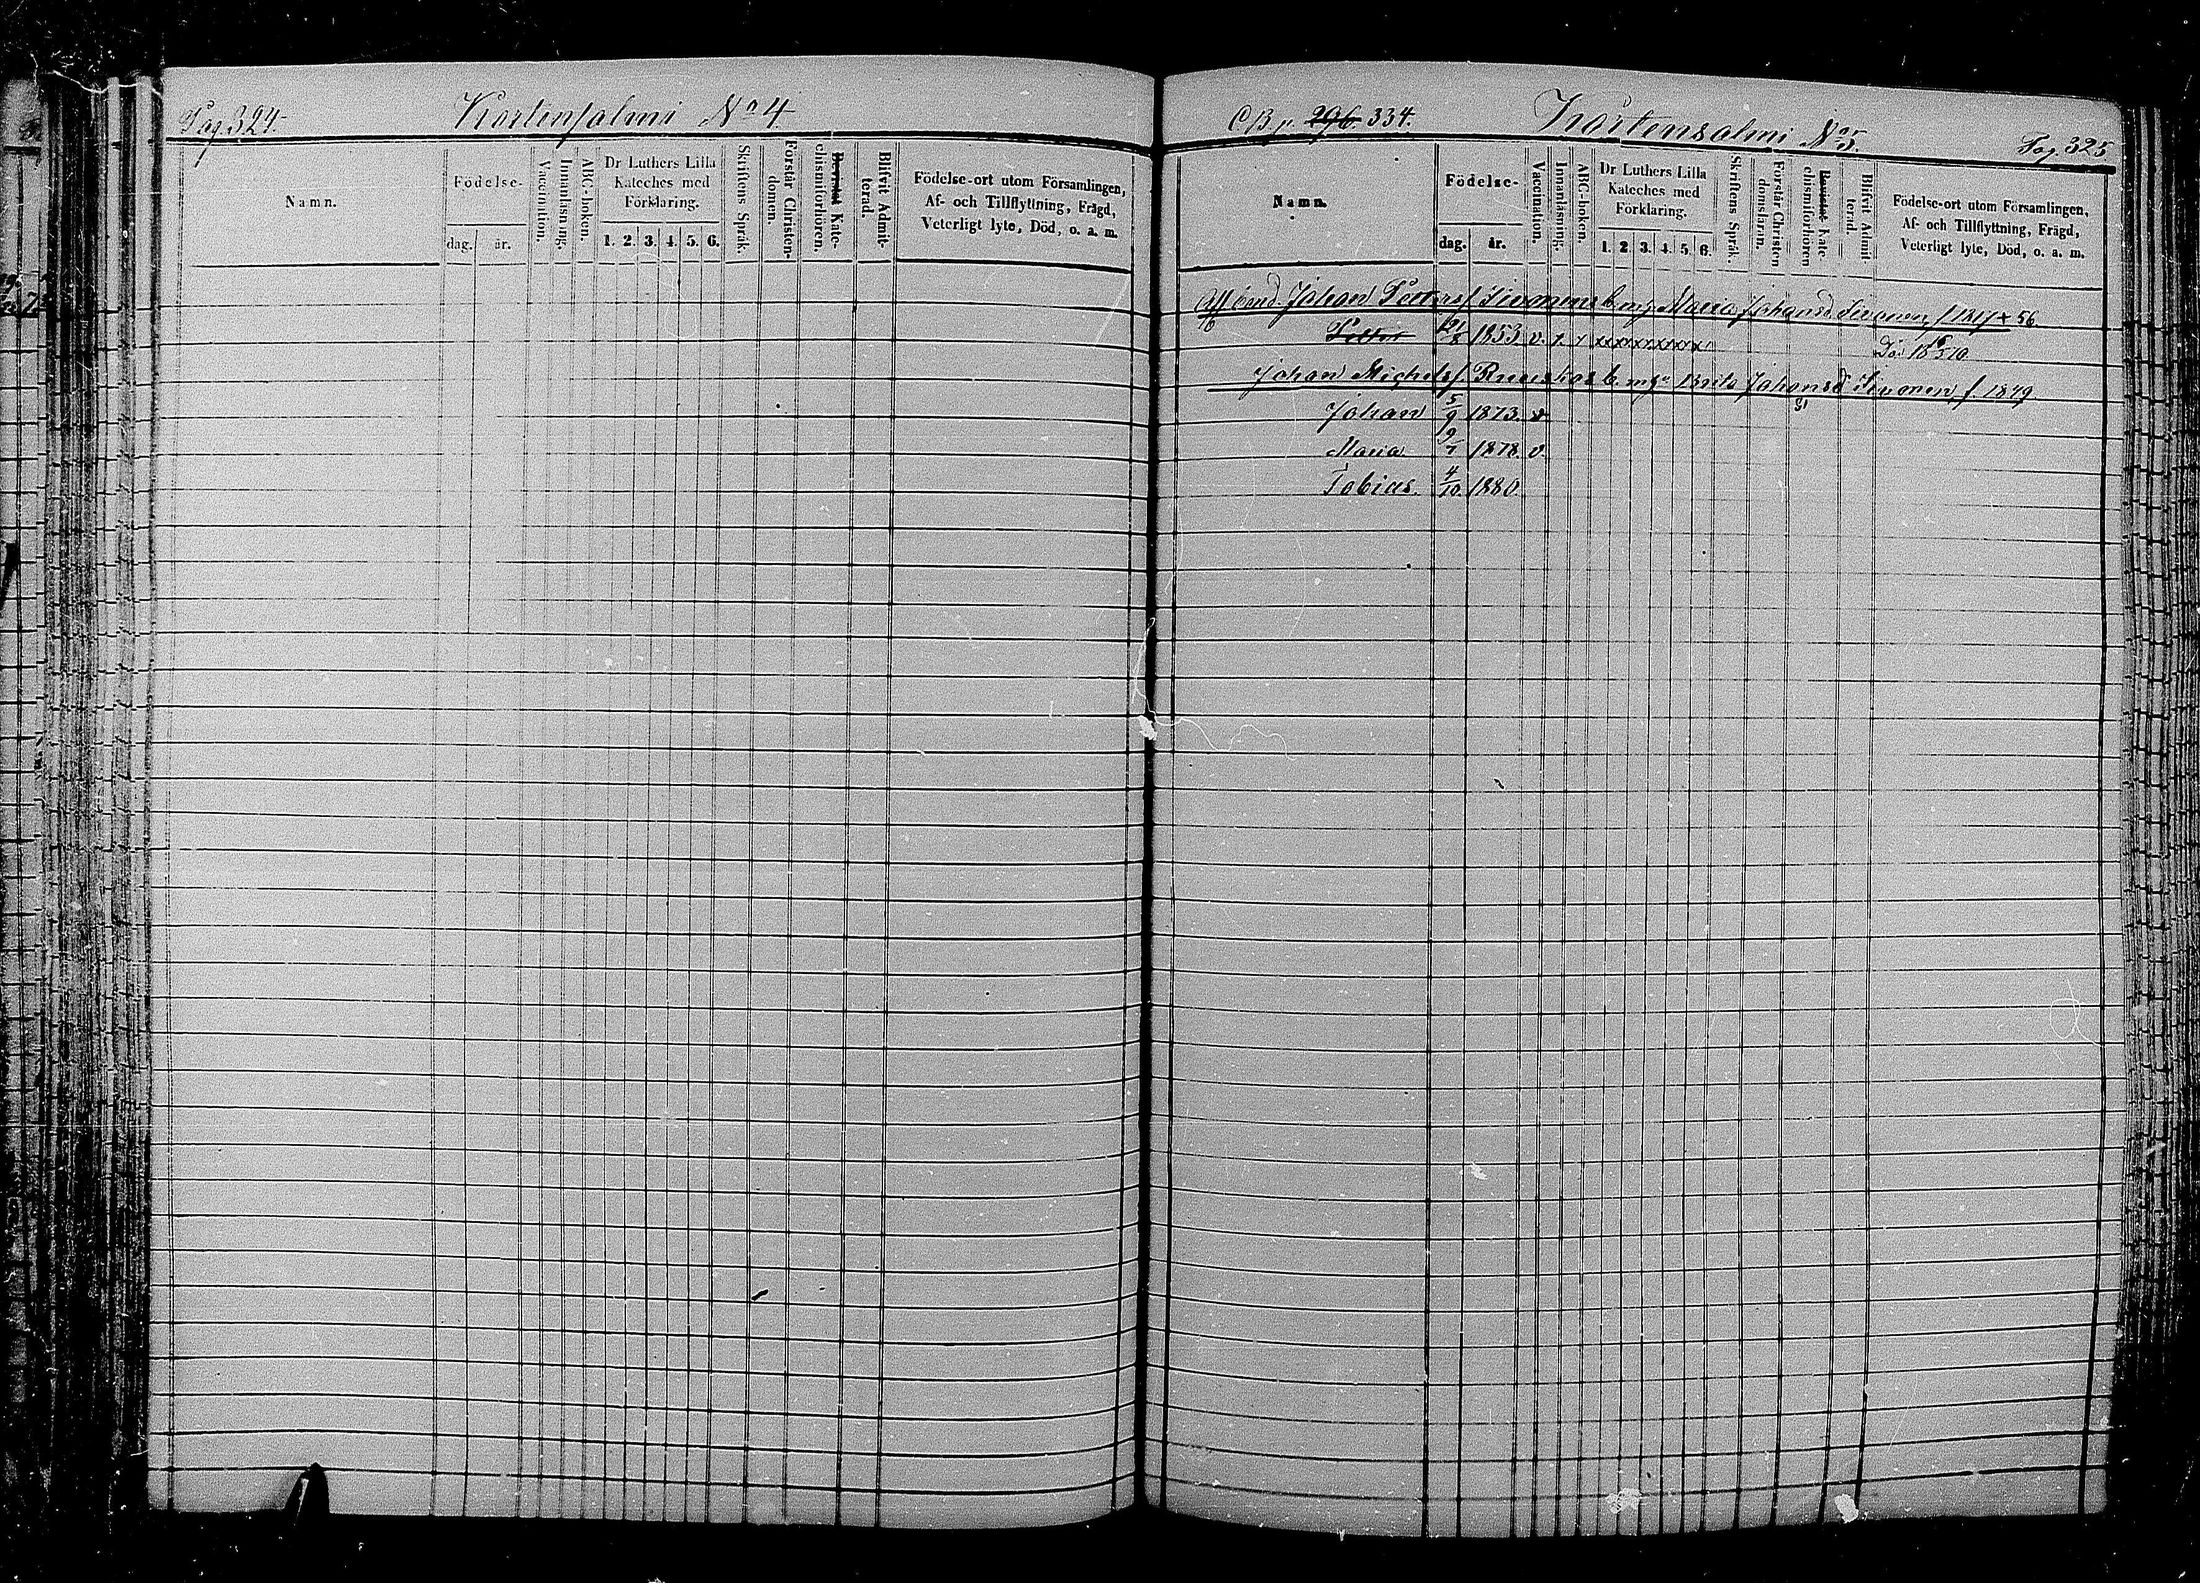 Pag. 324.
Kortensalmi No 4.
Namn.
Födelse-
dag. år.
Vaccination.
Innanläsning.
ABC-boken.
Dr Luthers Lilla
Kateches med
Förklaring.
1. 2. 3. 4. 5. 6.
Skriftens Språk.
Förstår Christen-
domen.
Bevistat Kate-
chismiförhören.
Blifvit Admit-
terad.
Födelse-ort utom Församlingen,
Af- och Tillflyttning, Frägd,
Veterligt lyte, Död, o. a. m.
CB p. 296. 334.
Kortensalmi No 5.
Pag. 325
Namn.
Födelse-
dag. år.
Vaccination.
Innanläsning.
ABC-boken.
Dr Luthers Lilla
Kateches med
Förklaring.
1. 2. 3. 4. 5. 6.
Skriftens Språk.
Förstår Christen
domslaran.
Bevistat Kate
chismiförhören
Blifvit Admit
terad.
Födelse-ort utom Församlingen,
Af- och Tillflyttning, Frägd,
Veterligt lyte, Död, o. a. m.
Johan Petters Maria Johansd 56
Petter 1853. v. x x x x x x x x x
Död
Johan Michelss Brita Johansd f. 1849.
Johan 5/9 1873. v.
Maria 9/7 1878. v.
Tobias. 4/10. 1880